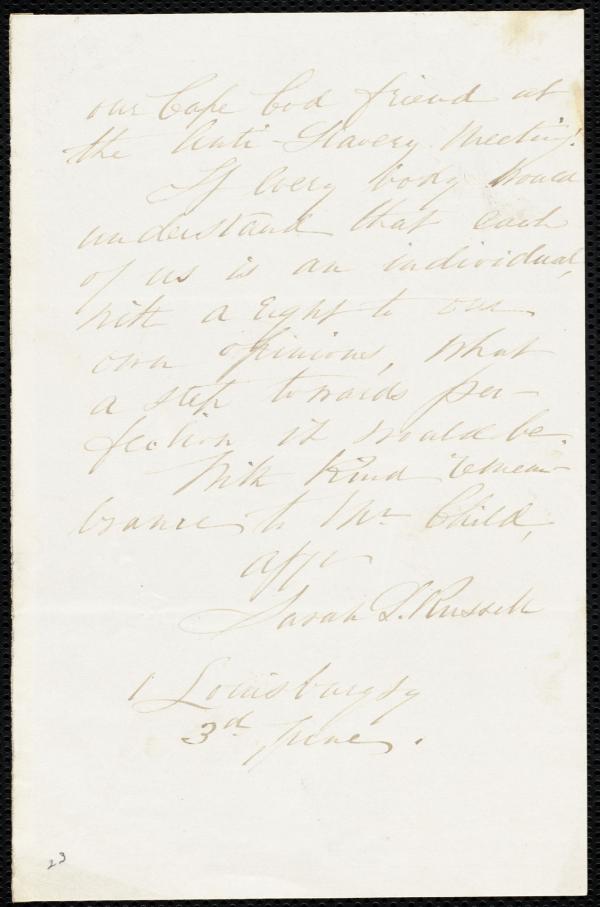 our Cape Cod friend at
the Anti-Slavery Meeting.
If every body would
understand that each
of us is an individual,
with a right to our
own opinions, what
a step towards per-
fection it would be.
With Kind remem-
brance to Mr Child,
affy
Sarah S. Russell
1 Louisburg Sq
3d June.
23